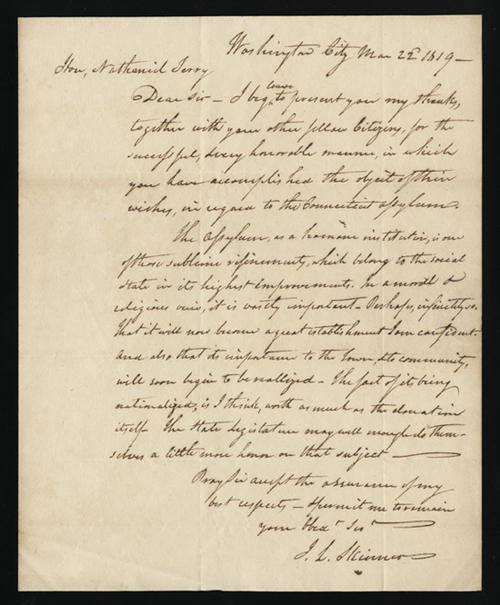 Washington City Mar 22d 1819 —
Hon, Nathaniel Terry
Dear Sir — I beg leave to present you my thanks,
together with your other fellow Citizens, for the
successful, & very honorable manner, in which
you have accomplished the object of their
wishes, in regard to the Connecticut Asylum.
The Asylum, as a humane institution, is one
of those sublime refinements, which belong to the social
state in its highest improvements. In a moral &
religious view, it is vastly important — Perhaps, infinitely so.
That it will now become a great establishment I am confident —
and also that its importance to the town, & to community,
will soon begin to be reallized — The fact of its being
nationalized, is I think, worth as much as the donation
itself — The State Legislature may well enough do them-
selves a little more honor on that subject —
Pray Sir accept the assurance of my
best respects — & permit me to remain
your Obedt Sert
J. L. Skinner